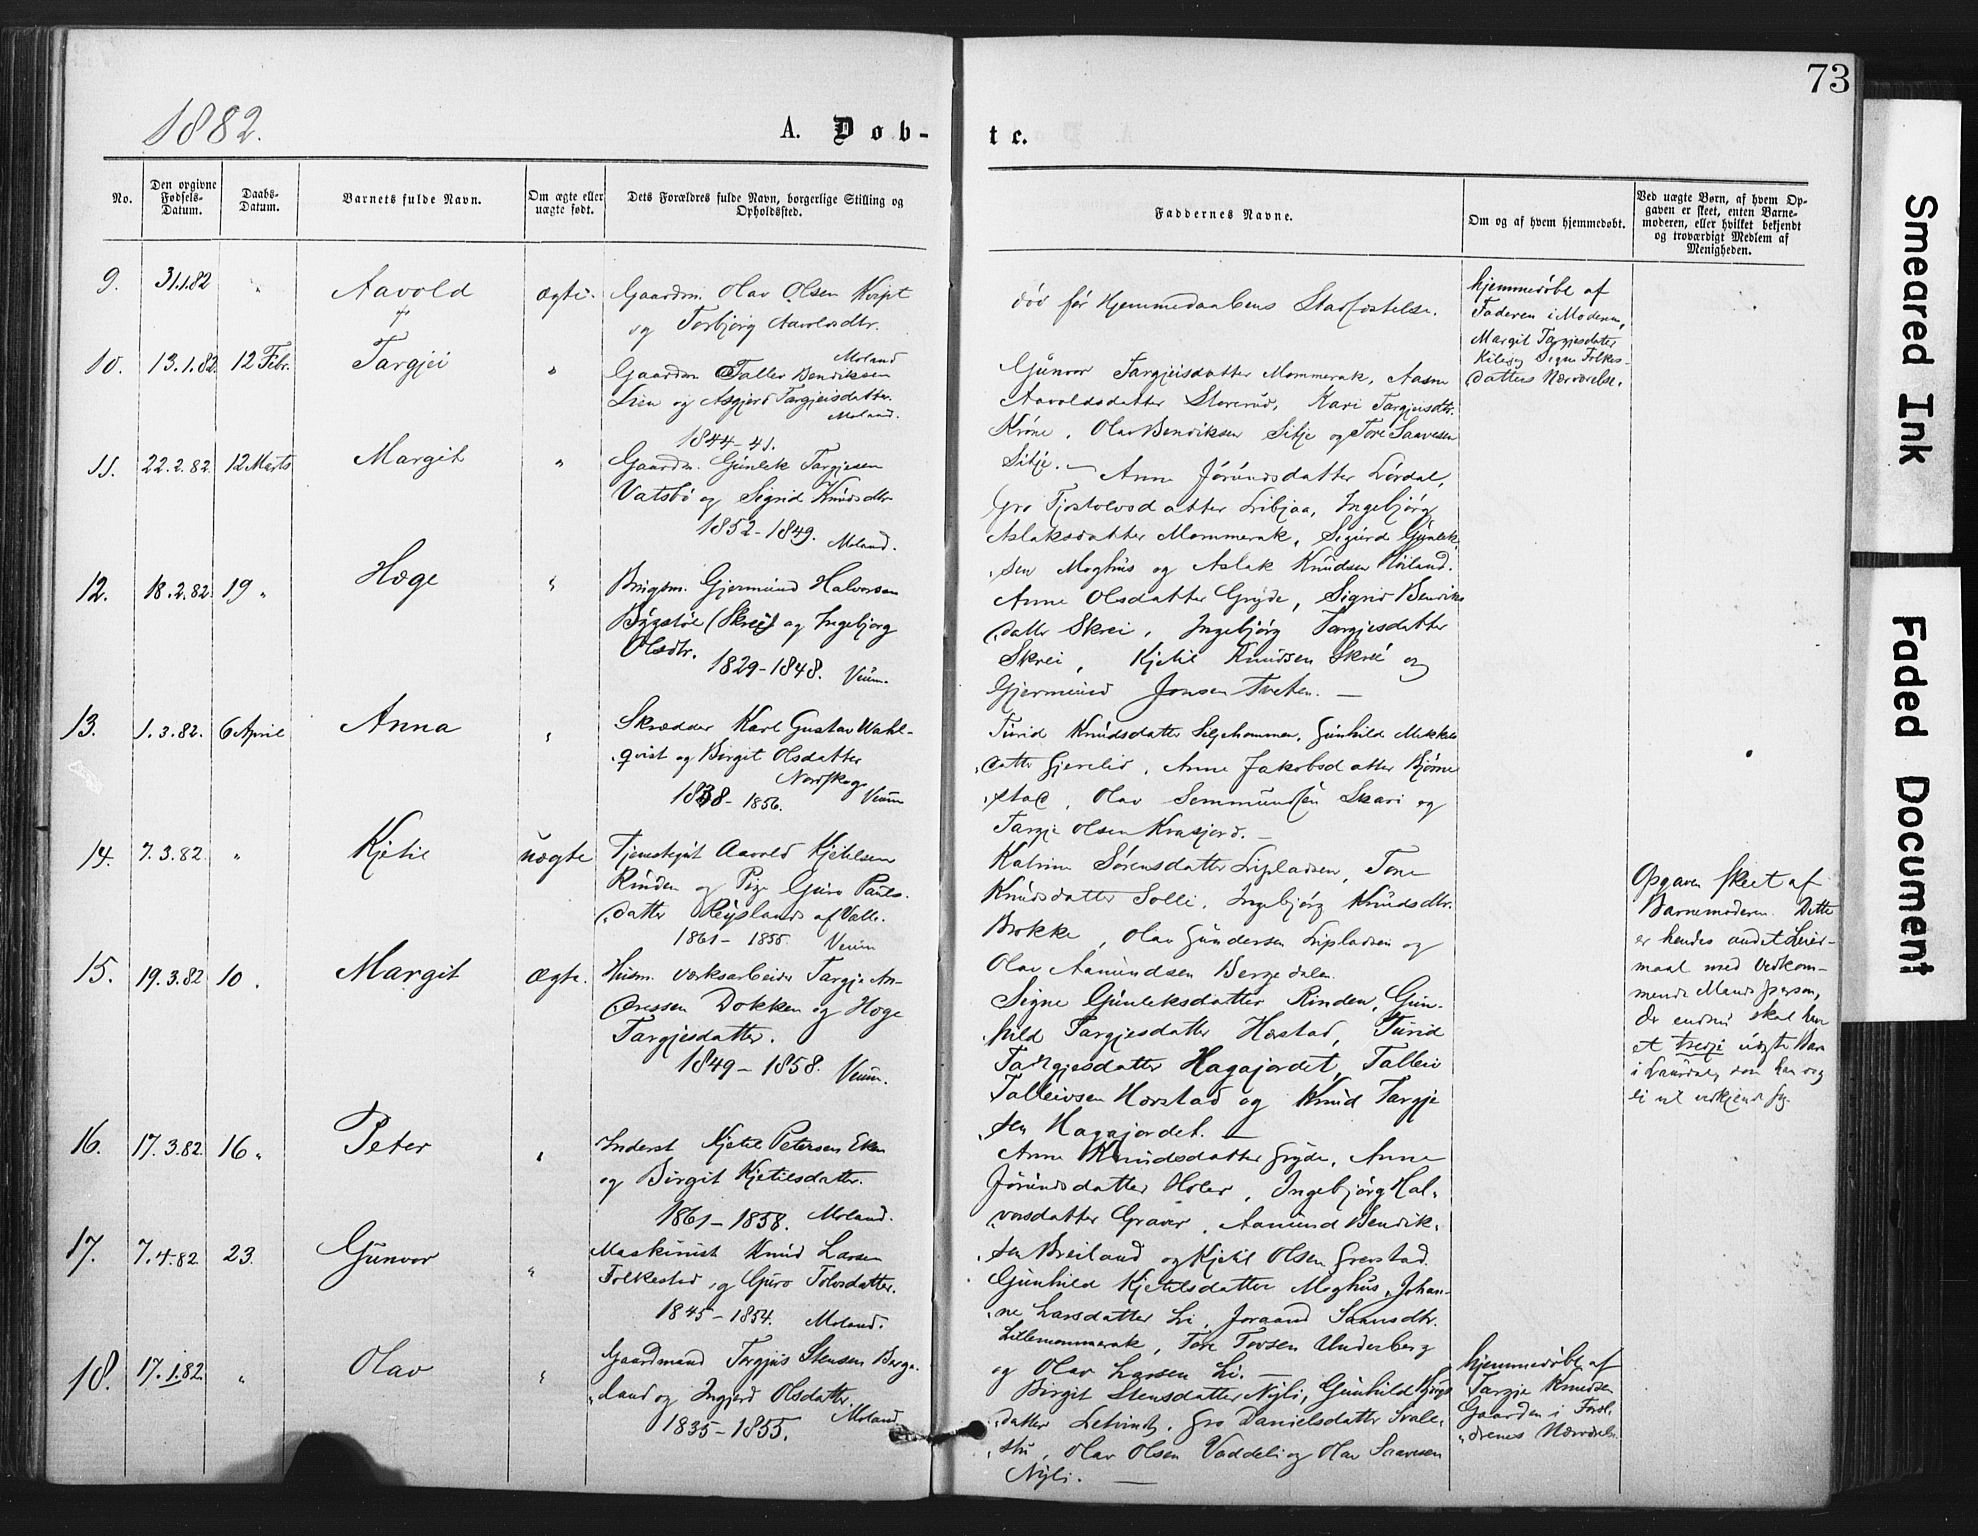 73
1882.
A. Døb-
te.
No.
Den opgivne Fødsels-Datum.
Daabs-Datum.
Barnets fulde Navn.
Om ægte eller uægte født.
Dets Forældres fulde Navn, borgerlige Stilling og Opholdssted.
Faddernes Navne.
Om og af hvem hjemmedøbt.
Ved uægte Børn, af hvem Opgaven er skeet, enten Barnemoderen, eller hvilket bekjendt og troværdigt Medlem af Menigheden.
9. 31.1.82 " Aavold ægte.
Gaardm. Olav Olsen
og Torbjørg Aavoldsdtr.
Moland
død før Hjemmedaabens Stadfæstelse.
hjemmedøbt af
Faderen i Moderen,
Margit Targjesdatter
og Signe Folkes-
datters Nærværelse.
10. 13.1.82. 12 Febr. Targjei "
Gaardm Tallev Bendiksen
Lien og Asgjerd Targjeisdatter.
Moland.
1844-41.
Gunvor Targjeisdatter Mommerak, Aasne
Aavoldsdatter Storerud, Kari Targjeisdtr.
Krone, Olav Bendiksen Sitje og Tore Saavesen
Sitje. —
11. 22.2.82. 12 Marts Margit "
Gaardm. Gunlek Targjesen
Vatsbø og Sigrid Knudsdtr
1852-1849. Moland.
Anne Jørundsdatter Lørdal,
Gro Tjostolvsdatter Libjaa, Ingebjørg
Aslaksdatter Mommerak, Sigurd Gunlek-
sen Moghus og Aslak Knudsen Høiland.
12. 18.2.82. 19 " Hæge "
Brugsm. Gjermund Halvorsen
Bygstøl (Skrei) og Ingebjorg
Olsdtr.
1829-1848. Veum.
Anne Olsdatter Gryde, Signe Bendiks
datter Skrei, Ingebjørg Targjesdatter
Skrei, Kjetil Knudsen Skrei og
Gjermund Jonsen Tveten. —
13. 1.3.82. 6 April Anna "
Skrædder Karl Gustav Wahl-
qvist og Birgit Olsdatter
Nordskog
1838-1856. Veum
Turid Knudsdatter Seljehammer, Gunhild Mikkels
datter Gjerelid, Anne Jakobsdatter Bjørne
stad, Olav Semmundsen Skari og
Targje Olsen Kvasjord. —
14. 7.3.82. " Kjetil uægte
Tjenestegut Aavold Kjetilsen
Rinden og Pige Guro Pauls-
datter Reijsland af Valle.
1861-1855. Veum
Katrine Sørensdatter Lipladsen, Tone
Knudsdatter Solli, Ingebjørg Knudsdtr.
Brokke, Olav Gundersen Lipladsen og
Olav Aamundsen Bergedalen.
Opgaven skeet af
Barnemoderen. Dette
er hendes andet Leier-
maal med Vedkom-
mende Mandsperson,
der endnu skal have
et tredje uægte Barn
i Laurdal, som han dog
ei vil vedkjende sig.
15. 19.3.82. 10. Margit Ægte.
Husm. Værksarbeider Targje An-
dressen Dokken og Hæge
Targjesdatter.
1849-1858. Veum.
Signe Gunleksdatter Rinden, Gun-
hild Targjesdatter Hærstad, Turid
Targjesdatter Hagajordet, Talleiv
Talleivsen Hærstad og Knud Targje
sen Hagajordet. —
16. 17.3.82. 16 " Peter "
Inderst Kjetil Petersen Eken
og Birgit Kjetilsdatter.
1861-1858. Moland.
Anne Knudsdatter Gryde, Anne
Jørundsdatter Holer, Ingebjørg Hal-
vorsdatter Graver, Aamund Bendik-
sen Breiland og Kjetil Olsen Grerstad.
17. 7.4.82. 23. Gunvor "
Maskinist Knud Larsen
Folkestad og Guro Tolvsdatter.
1845-1854. Moland.
Gunhild Kjetilsdatter Moghus, Johan-
ne Larsdatter Li, Joraand Saamsdtr.
Lillemommerak, Tore Tovsen Underberg
og Olav Larsen Li. —
18. 17.1.82. " Olav "
Gaardmand Torgjus Stensen Berge
land og Ingjerd Olsdatter.
1835-1855. Moland
Birgit Stensdatter Nyli, Gunhild
datter, Gro Danielsdatter Svale-
stu, Olav Olsen Vaddeli og Olav Saavesen
Nyli. —
hjemmedøbt af
Targje Knudsen
Gaarden i Foræl-
drenes Nærværelse.
Smeared Ink
Faded Document